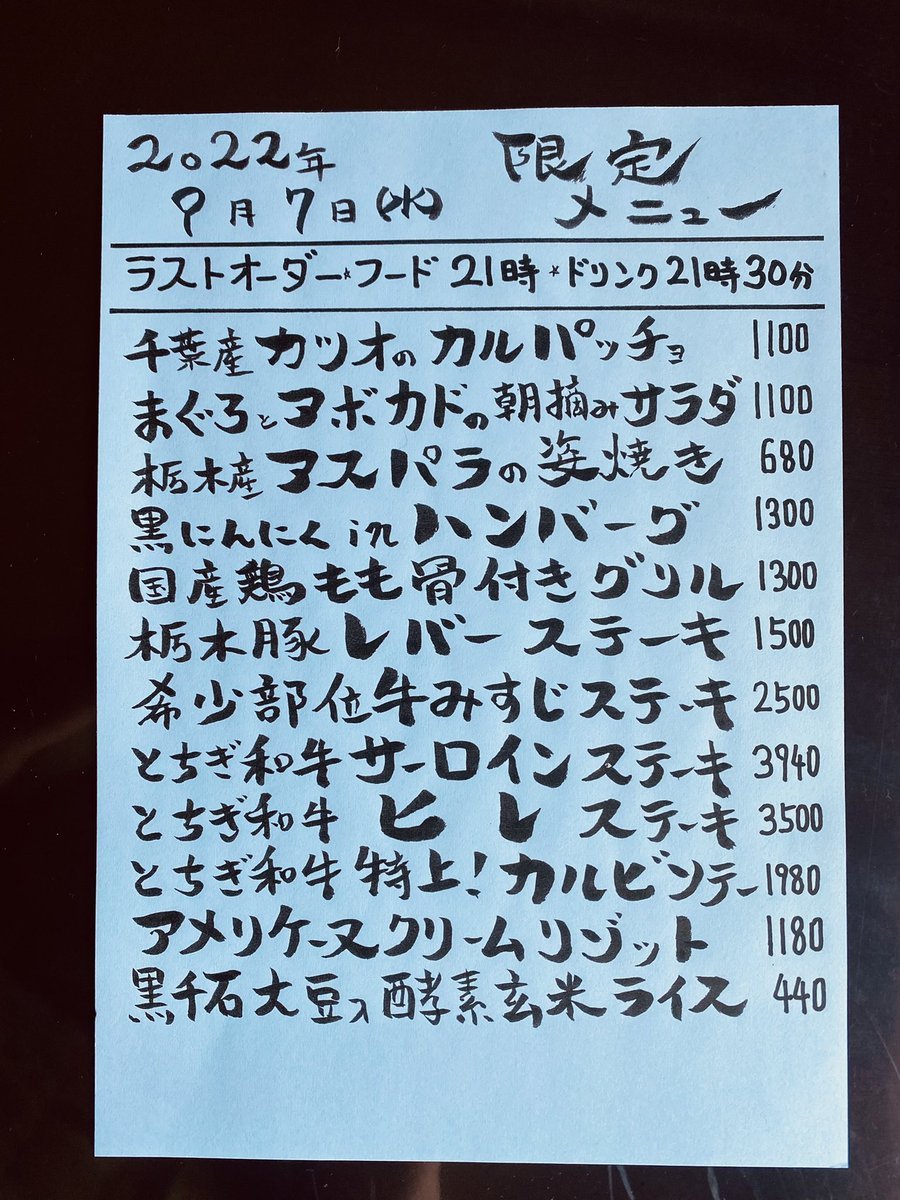 2022年 限定
9月7日(水) メニュー
ラストオーダー☆フード21時☆ドリンク21時30分
千葉産カツオのカルパッチョ 1100
まぐろとアボカドの朝摘みサラダ 1100
栃木産アスパラの姿焼き 680
黒にんにくinハンバーグ 1300
国産鶏もも骨付きグリル 1300
栃木豚レバーステーキ 1500
希少部位牛みすじステーキ 2500
とちぎ和牛サーロインステーキ 3940
とちぎ和牛ヒレステーキ 3500
とちぎ和牛特上!カルビソテー 1980
アメリケーヌクリームリゾット 1180
黒千石大豆入酵素玄米ライス 440